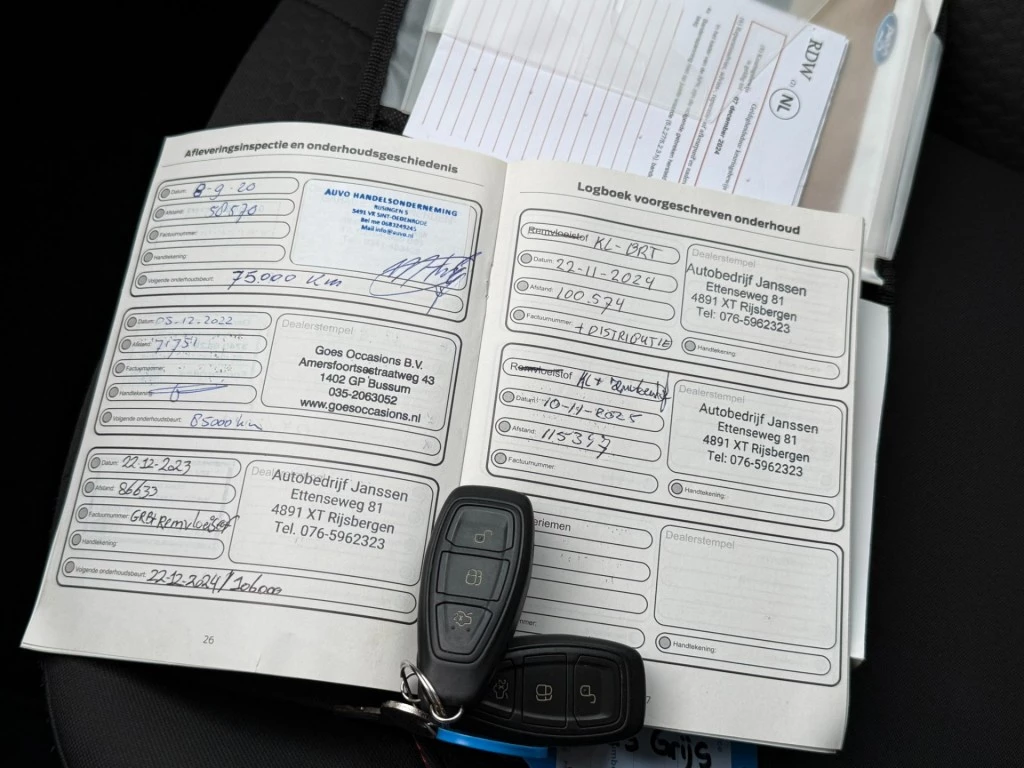 Afleveringsinspectie en onderhoudsgeschiedenis
Datum: 8-9-20
Afstand: 58570
Factuurnummer:
Handtekening:
Volgende onderhoudsbeurt: 75.000 Km
AUVO HANDELSONDERNEMING
RIJSINGEN 5
5491 VE SINT-OEDENRODE
Mail info@auvo.nl
Datum: 05-12-2022
Afstand: 71751
Factuurnummer:
Handtekening:
Volgende onderhoudsbeurt: 85000 km
Dealerstempel
Goes Occasions B.V.
Amersfoortsestraatweg 43
1402 GP Bussum
035-2063052
www.goesoccasions.nl
Datum: 22-12-2023
Afstand: 86633
Factuurnummer: GRBt + Remvloeistof
Handtekening:
Volgende onderhoudsbeurt: 22-12-2024/106000
Dealerstempel
Autobedrijf Janssen
Ettenseweg 81
4891 XT Rijsbergen
Tel. 076-5962323
26
Logboek voorgeschreven onderhoud
Remvloeistof KL-BRT
Datum: 22-11-2024
Afstand: 100.574
Factuurnummer: + DISTRIBUTIE
Dealerstempel
Autobedrijf Janssen
Ettenseweg 81
4891 XT Rijsbergen
Tel: 076-5962323
Handtekening:
Remvloeistof KL +
Datum: 10-11-2025
Afstand: 115397
Factuurnummer:
Autobedrijf Janssen
Ettenseweg 81
4891 XT Rijsbergen
Tel: 076-5962323
Handtekening:
eriemen
mmer:
Dealerstempel
Handtekening:
RDW
NL
07 december 2024
Ford
Grijs